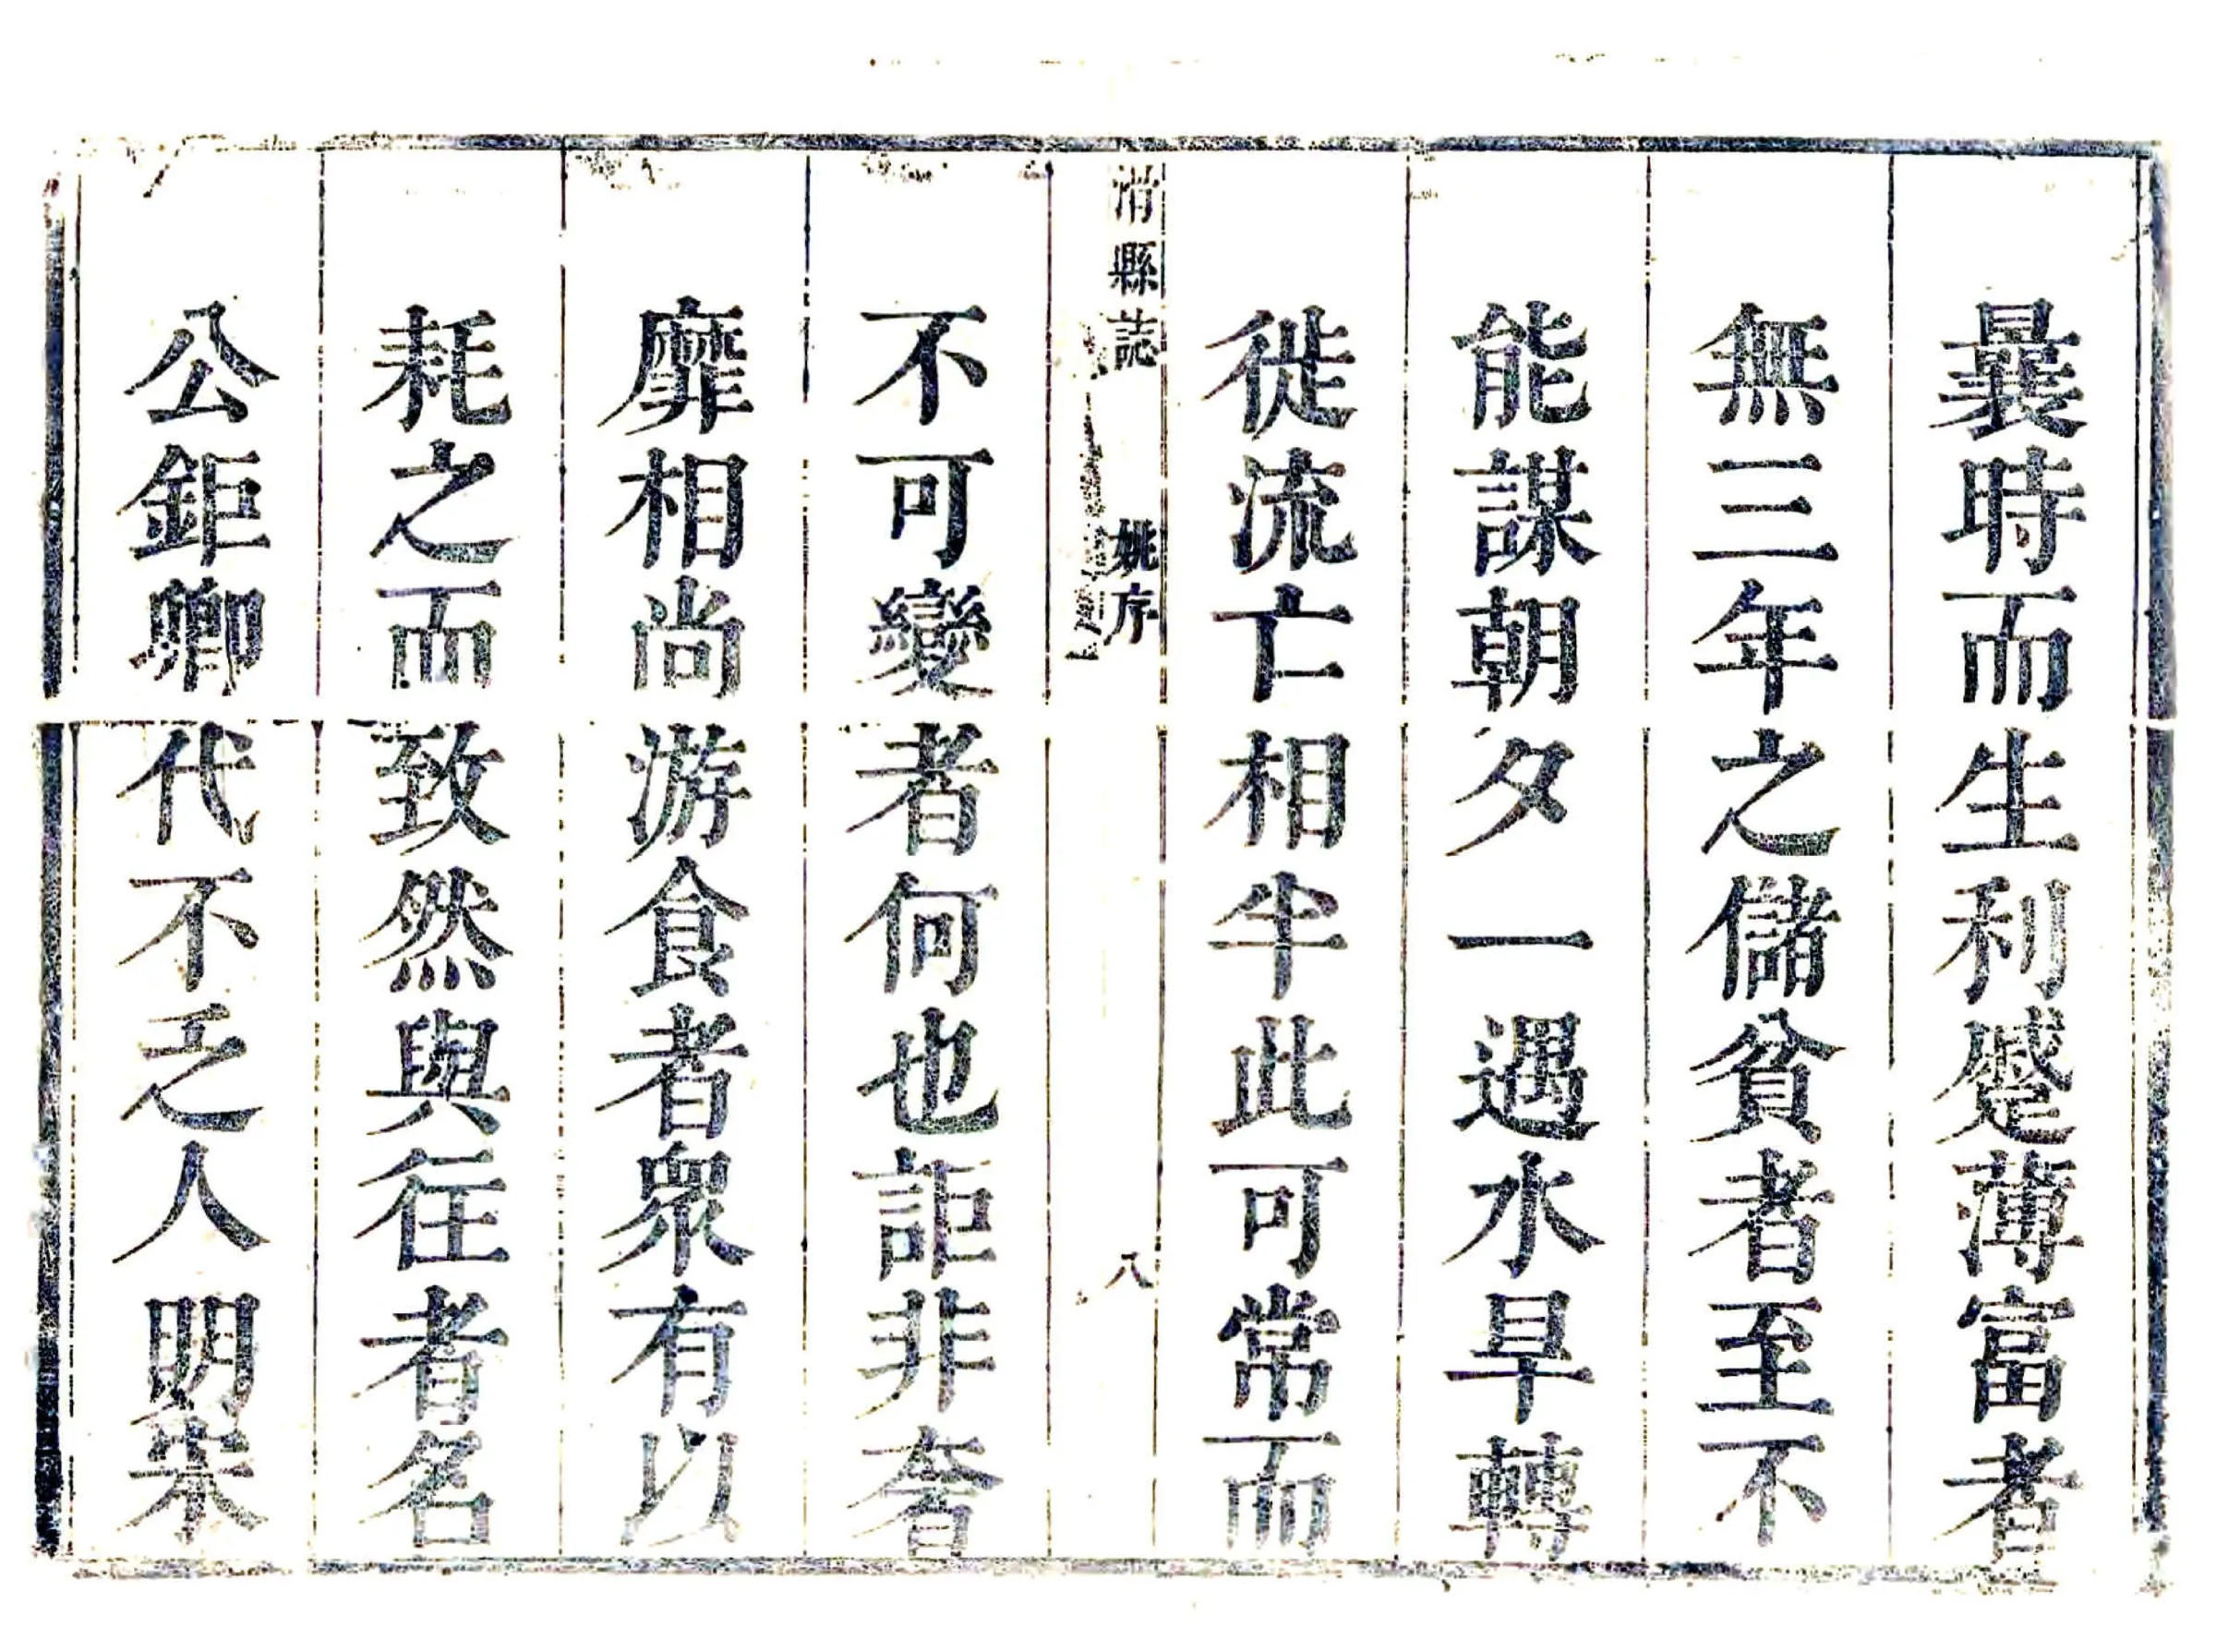 曩時而生利蹙薄富者
無三年之儲貧者至不
能謀朝夕一遇水旱轉
徙流亡相半此可常而
滑縣誌 姚序 八
不可變者何也詎非奢
靡相尚游食者衆有以
耗之而致然與往者名
公鉅卿代不乏人明季